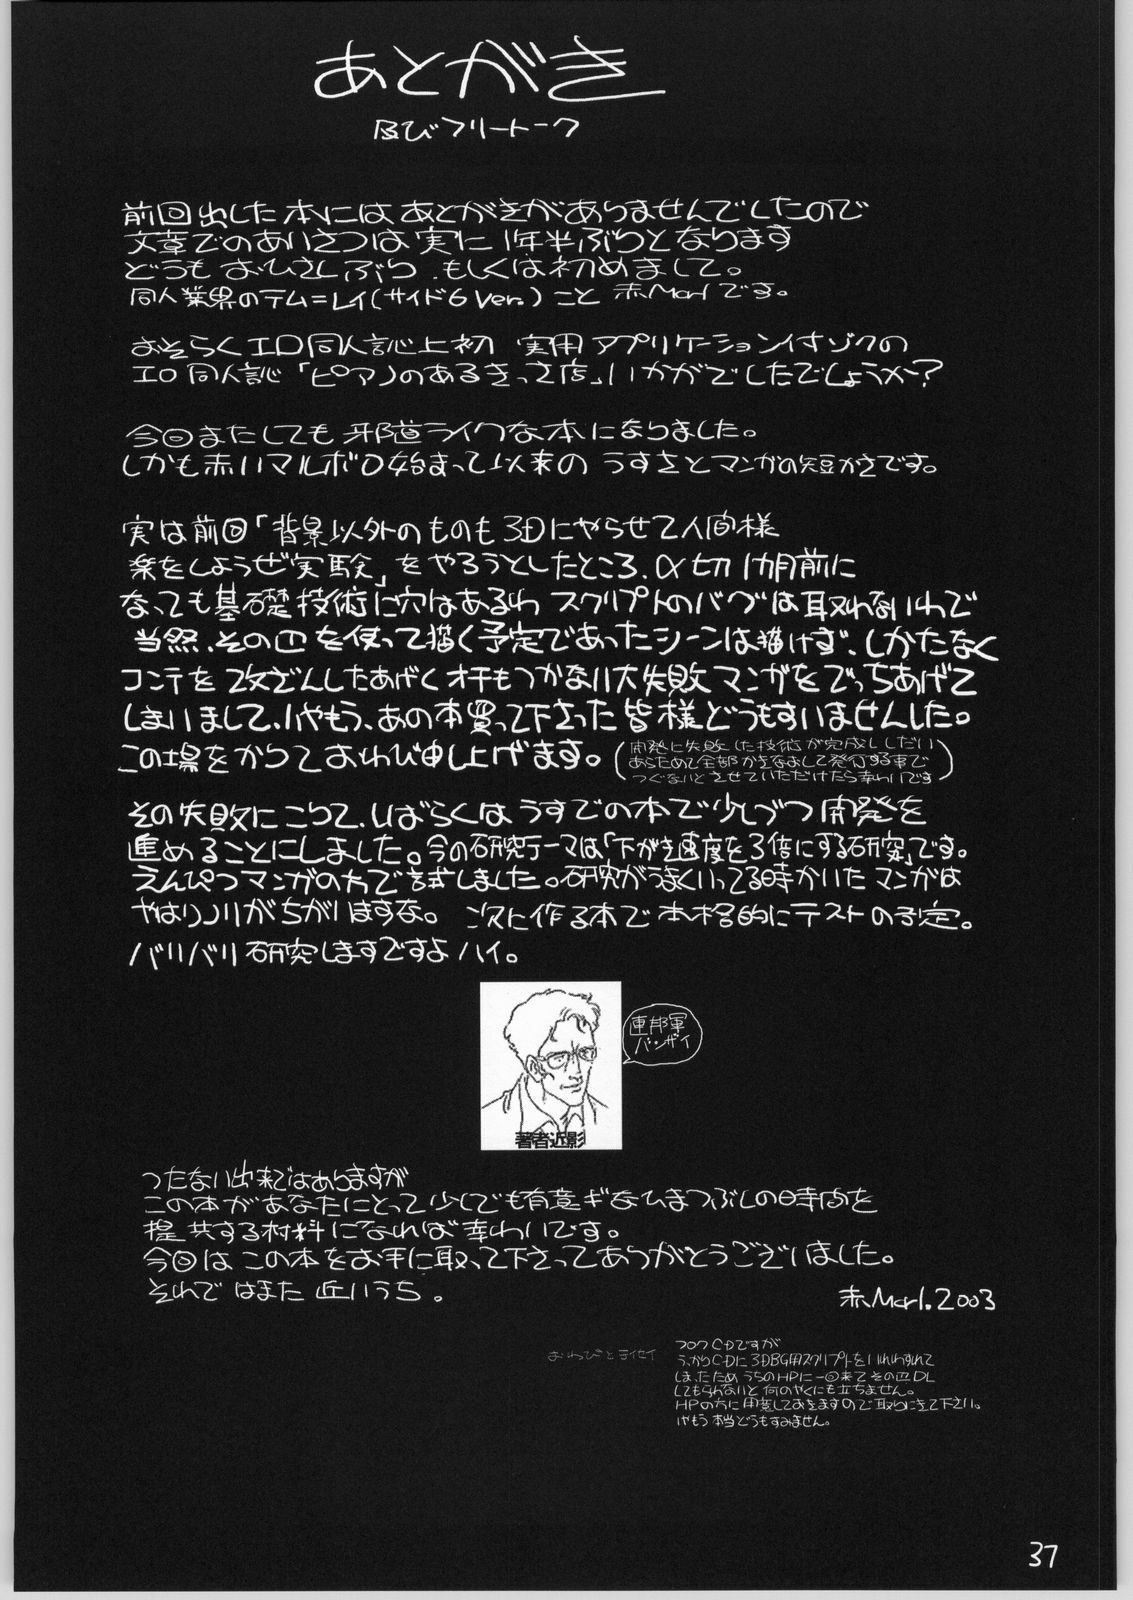 あとがき
及びフリートーク
前回出した本にはあとがきがありませんでしたので
文章でのあいさつは実に1年半ぶりとなります
どうもおひさしぶり、もしくは初めまして。
同人業界のテム=レイ(サイド6 Ver.)こと 赤Marlです。
おそらくエロ同人誌上初 実用アプリケーション付ゾクの
エロ同人誌「ピアノのあるきっさ店」いかがでしたでしょうか?
今回またしても邪道ライクな本になりました。
しかも赤いマルボロ始まって以来のうすさとマンガの短かさです。
実は前回「背景以外のものも3Dにやらせて人間様
楽をしようぜ実験」をやろうとしたところ、〆切1カ月前に
なっても基礎技術に穴はあるわ スクリプトのバグは取れないわで
当然、その巴を使って描く予定であったシーンは描けず、しかたなく
コンテを改ざんしたあげくオチもつかない大失敗マンガをでっちあげて
しまいまして、いやもう、あの本買って下さった皆様どうもすいませんした。
この場をかりておわび申し上げます。
(開発に失敗した技術が完成ししだい
あらためて全部かきなおして発行する事で
つぐないとさせていただけたら幸わいです)
その失敗にこりて、しばらくはうすでの本で少しづつ開発を
進めることにしました。今の研究テーマは「下がき速度を3倍にする研究」です。
えんぴつマンガの方で試しました。研究がうまくいってる時かいたマンガは
やはりノリがちがいますな。 次に作る本で本格的にテストの予定。
バリバリ研究しますですよハイ。
連邦軍
バンザイ
著者近影
つたない出来ではありますが
この本があなたにとって少しでも有意ギなひまつぶしの時間を
提共する材料になれば幸わいです。
今回はこの本をお手に取って下さってありがとうございました。
それではまた近いうち。
赤Marl.2003
おわびとテイセイ
フロクCDですが
うっかりCDに3DBG用スクリプトをいれわすれて
しまったためうちのHPに一回来てその巴DL
してもらわないと何のやくにも立ちません。
HPの方に用意しておきますので取りに来て下さい。
いやもう本当どうもすみません。
37